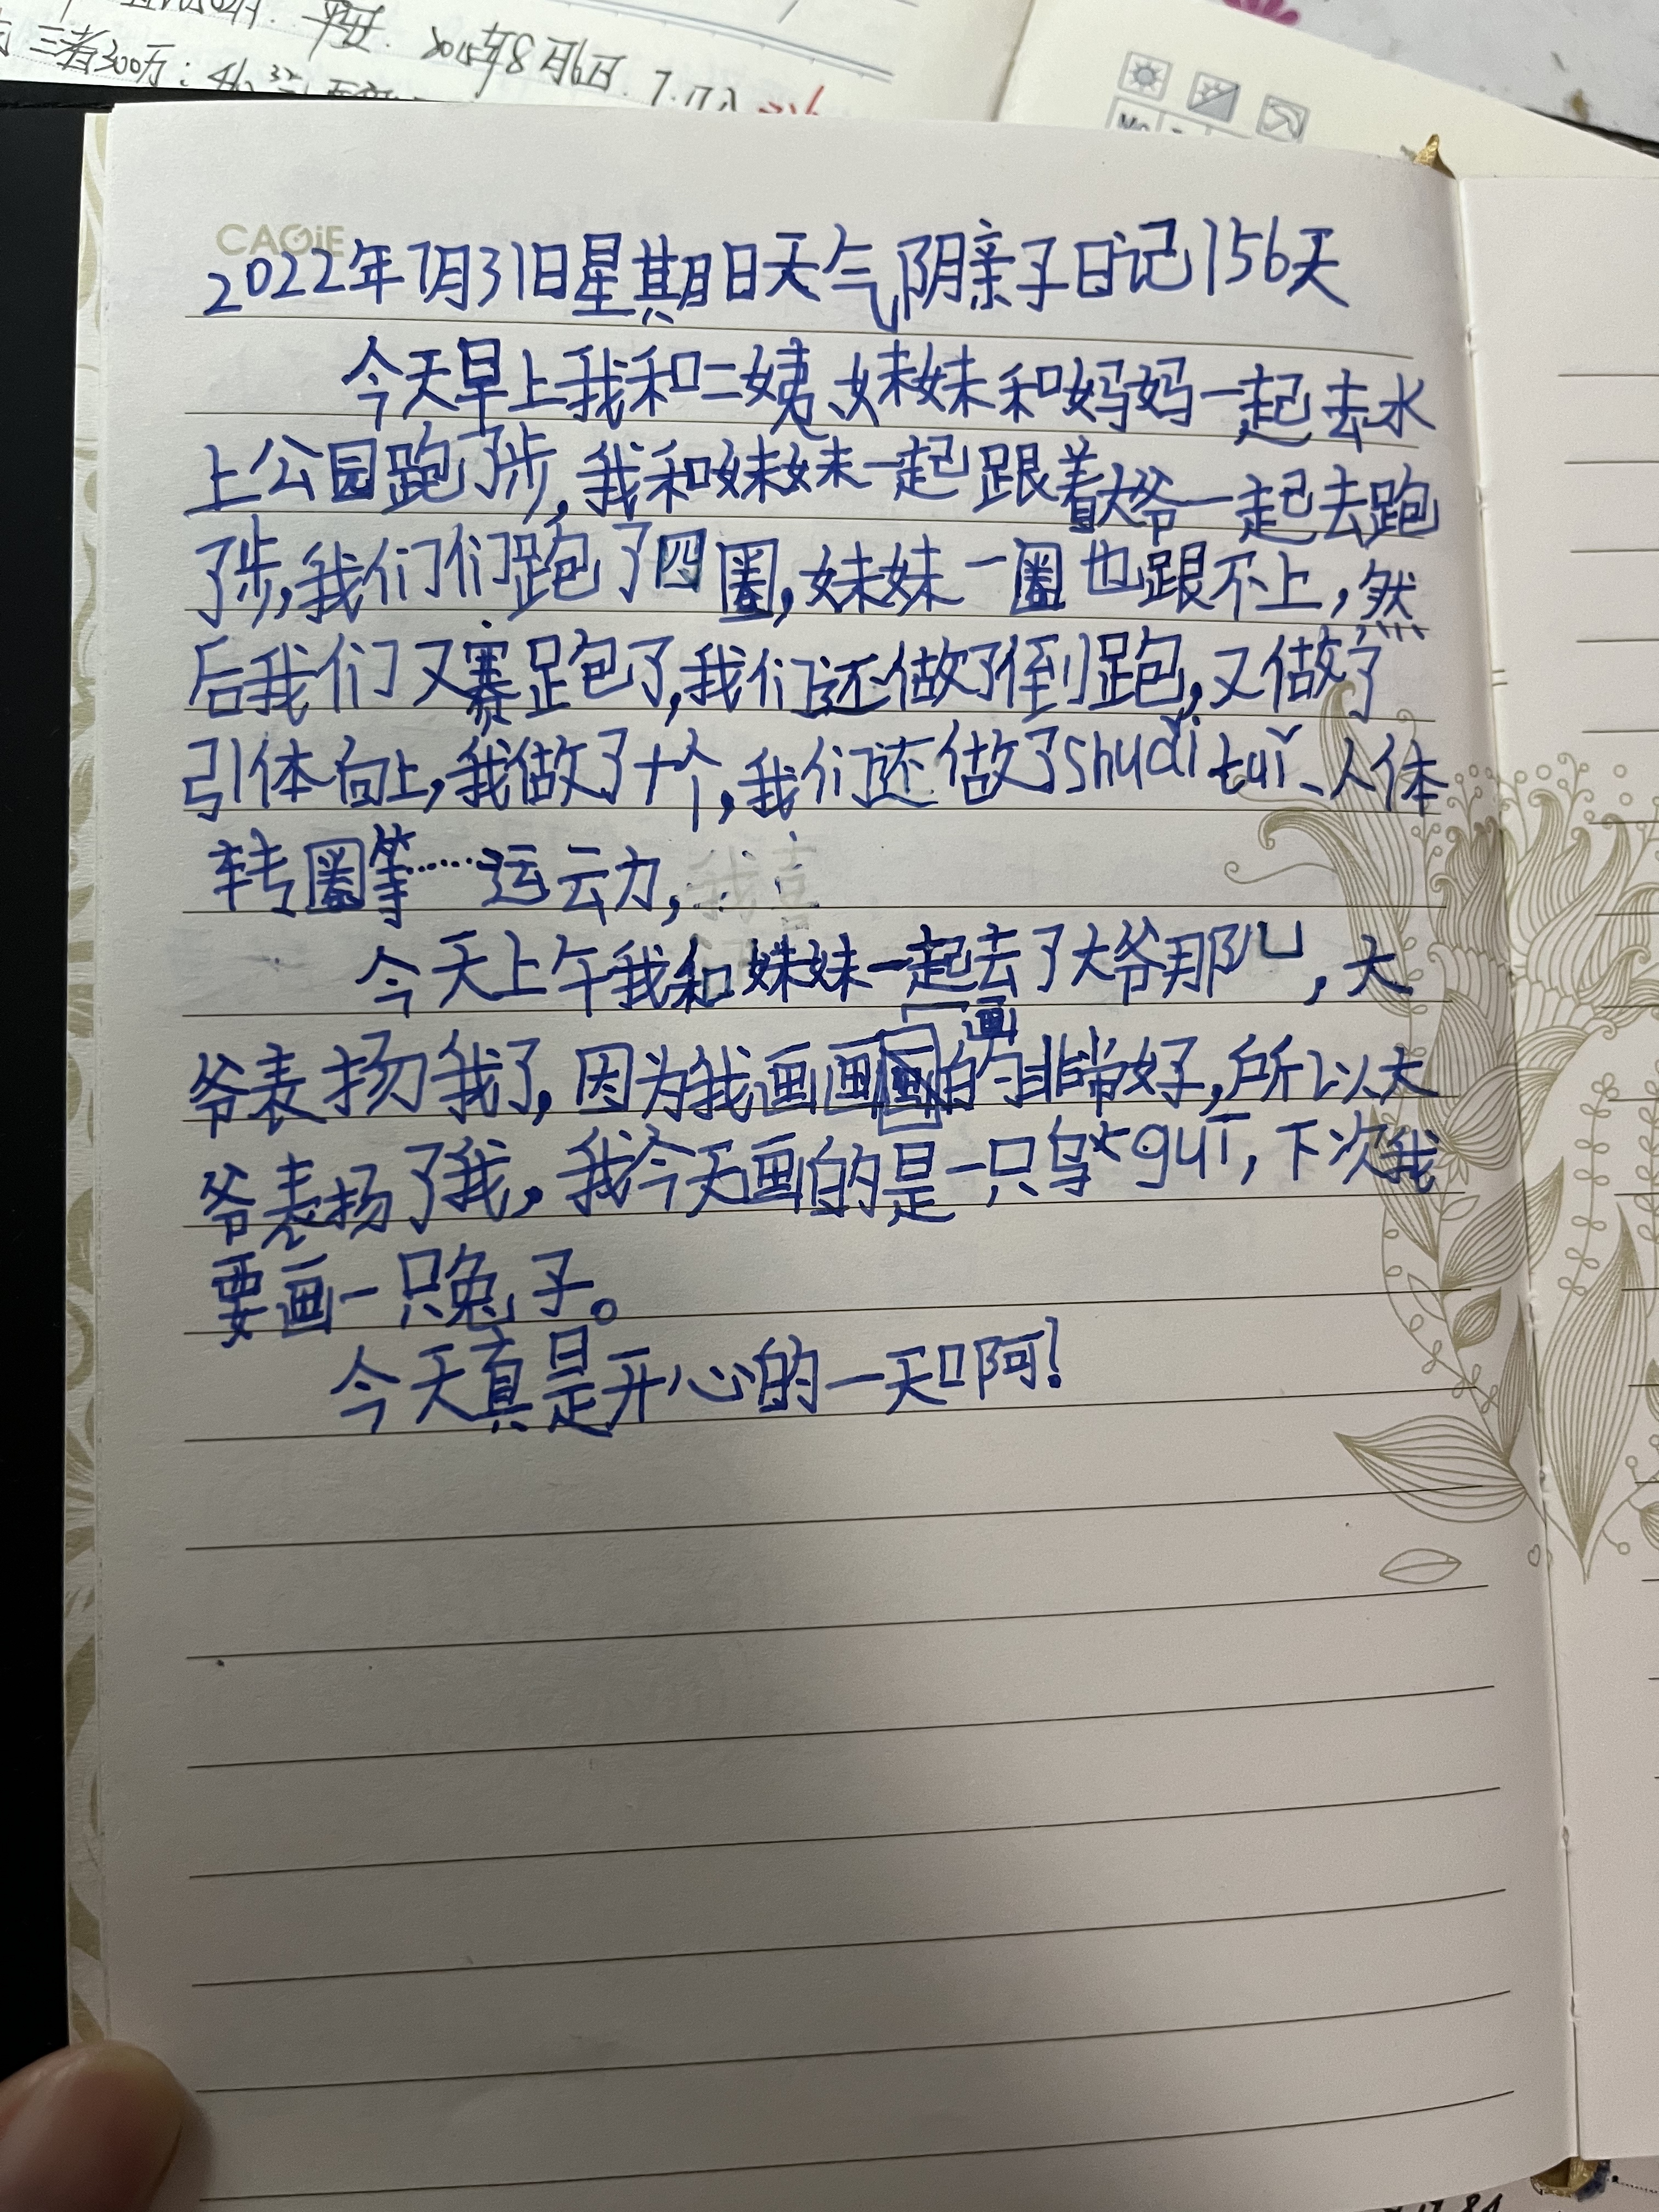 平安. 2015年8月6日.
三者300万:
CAGiE
2022年7月31日星期日天气阴亲子日记156天
今天早上我和二姨、妹妹和妈妈一起去水
上公园跑了步,我和妹妹一起跟着大爷一起去跑
了步,我们们跑了四圈,妹妹一圈也跟不上,然
后我们又赛跑了,我们还做了倒跑,又做了
引体向上,我做了十个,我们还做了shudi tuǐ、人体
转圈等……运动,
今天上午我和妹妹一起去了大爷那儿,大
爷表扬我了,因为我画画画的非常好,所以大
爷表扬了我,我今天画的是一只乌guī,下次我
要画一只兔子。
今天真是开心的一天啊!